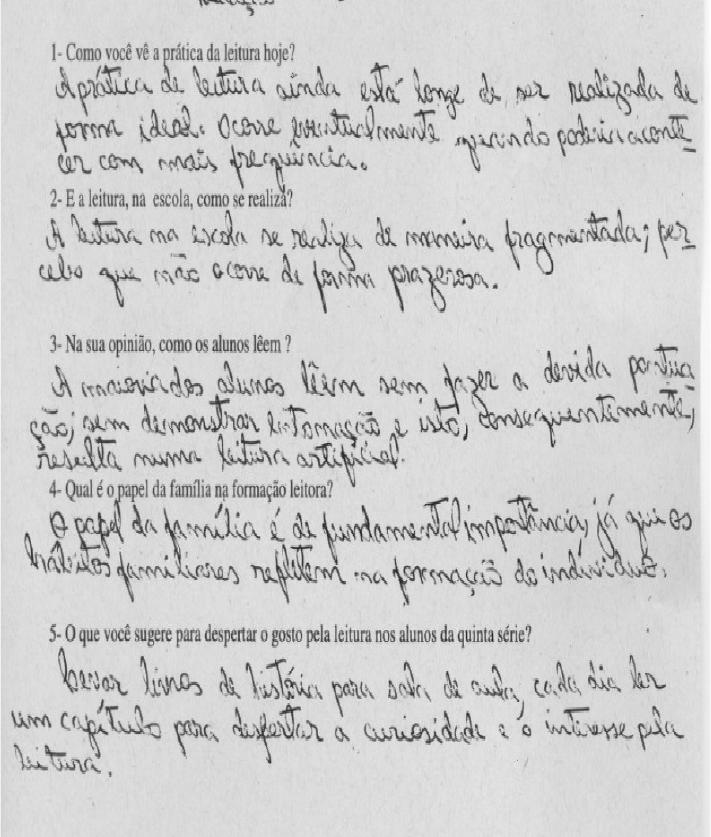 1- Como você vê a prática da leitura hoje?
A prática de leitura ainda está longe de ser realizada de
forma ideal. Ocorre eventualmente quando poderia aconte_
cer com mais frequência.
2- E a leitura, na escola, como se realiza?
A leitura na escola se realiza de maneira fragmentada; per_
cebo que não ocorre de forma prazerosa.
3- Na sua opinião, como os alunos lêem ?
A maioria dos alunos lêem sem fazer a devida pontua_
ção; sem demonstrar entonação e isto, consequentemente,
resulta numa leitura artificial.
4- Qual é o papel da família na formação leitora?
O papel da família é de fundamental importância, já que os
hábitos familiares refletem na formação do indivíduo.
5- O que você sugere para despertar o gosto pela leitura nos alunos da quinta série?
Levar livros de história para sala de aula, cada dia ler
um capítulo para despertar a curiosidade e o interesse pela
leitura.